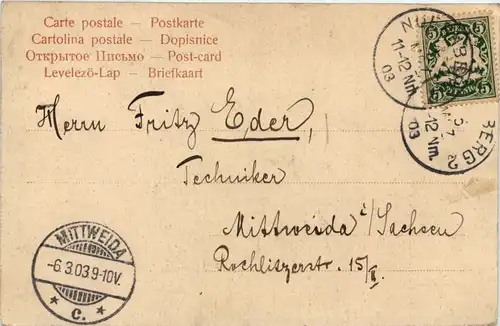 Carte postale — Postkarte
Cartolina postale — Dopisnice
Открытое Письмо — Post-card
Levelező-Lap — Briefkaart
Herrn Fritz Eder,
Techniker
Mittweida i/Sachsen
Rochlitzerstr. 15/II.
MITTWEIDA
-6.3.03 9-10V.
* c. *
11-12 Nm.
03
BERG 2
-12 Nm.
03
5 5
5 5